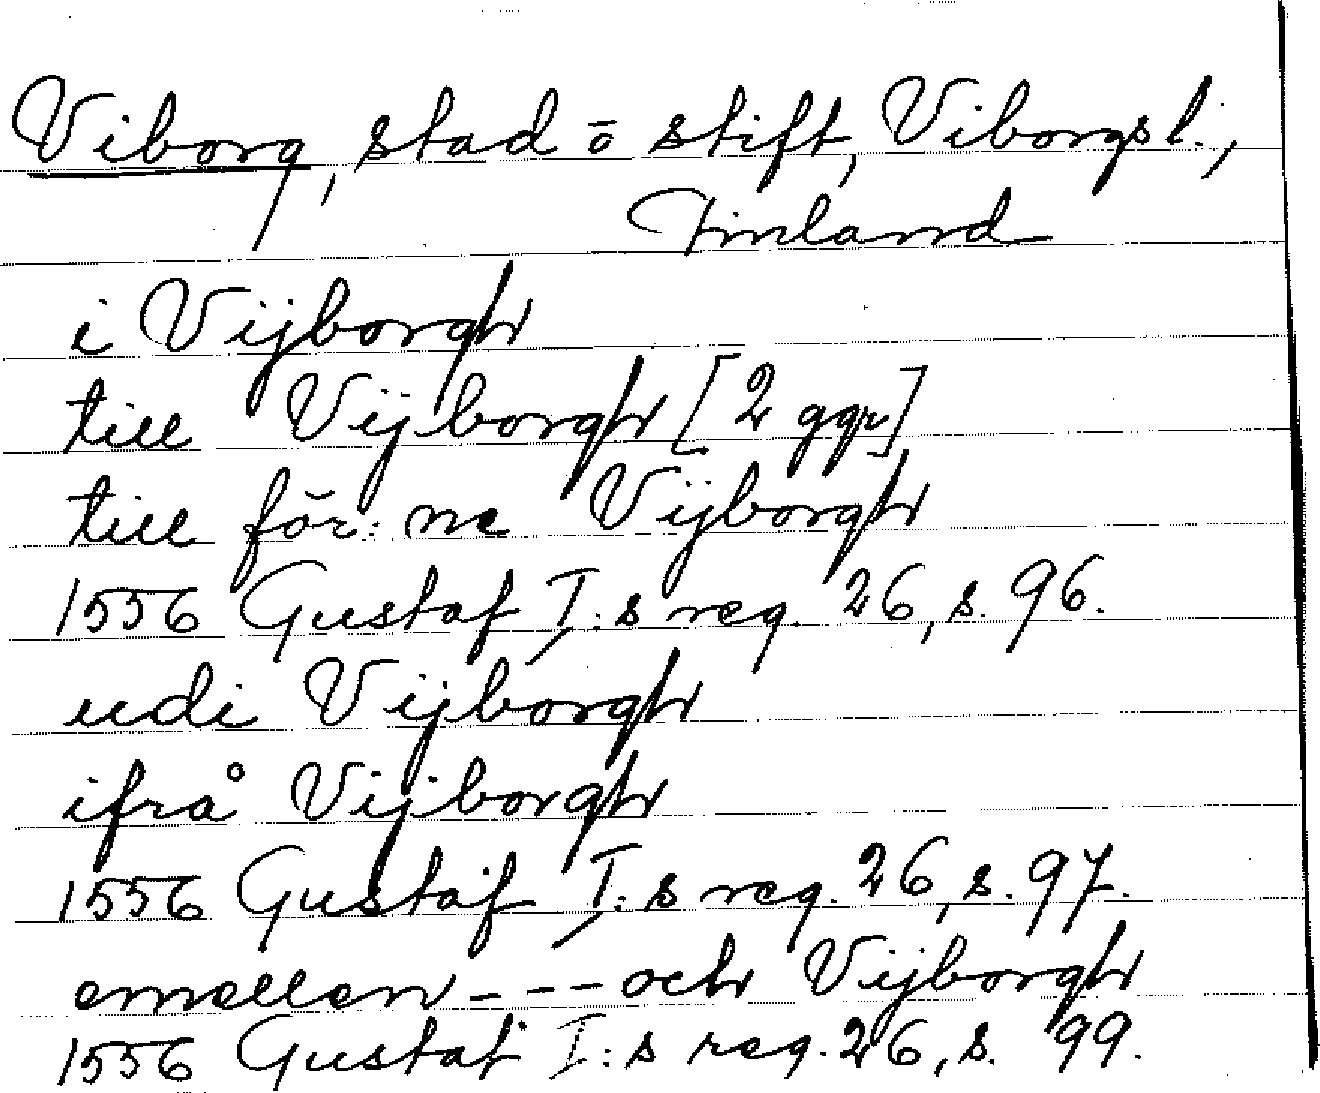 Viborg, stad o stift, Viborgsl.,
Finland
i Vijborgh
till Vijborgh [2 ggr]
till för: ne Vijborgh
1556 Gustaf I:s reg. 26, s. 96.
udi Vijborgh
ifrå Vijborgh
1556 Gustaf I:s reg. 26, s. 97.
emellen --- och Vijborgh
1556 Gustaf I:s reg. 26, s. 99.